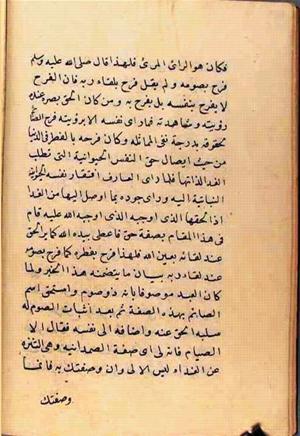 فكان هو الرائ المرئ فلهذا قال صلى الله عليه وسلم
فرح بصومه ولم يقل فرح بلقاء ربه فان الفرح
لا يفرح بنفسه بل يفرح به ومن كان الحق بصره عند
رؤيته ومشاهدته فما راى نفسه الا برؤيته ففرح الصائم
لحوقه بدرجة نفى المماثلة وكان فرحه بالفطر فى الدنيا
من حيث ايصال حق النفس الحيوانية التى تطلب
الغذا لذاتها فلما راى العارف افتقار نفسه الحيوانية
النباتية اليه وراى جوده بما اوصل اليها من الغذا
اداء لحقها الذى اوجبه الذى اوجبه الله عليه قام
فى هذا المقام بصفة حق فاعطى بيد الله كما يرى الحق
عند لقائه بعين الله فلهذا فرح بفطره كما فرح بصومه
عند لقاء ربه بيان ما يتضمنه هذا الخبر ولما
كان العبد موصوفا بانه ذو صوم واستحق اسم
الصائم بهذه الصفة ثم بعد اثبات الصوم له
سلبه الحق عنه واضافه الى نفسه فقال الا
الصيام فانه لى اى صفة الصمدانيه وهى التنزه
عن الغذاء ليس الا لى وان وصفتك به فانما
وصفتك